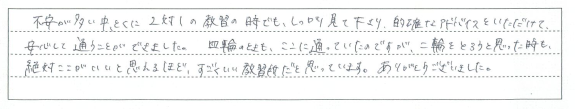 不安が多い中、とくに2対1の教習の時でも、しっかり見て下さり、的確なアドバイスをいただけて、
安心して通うことができました。四輪のときも、ここに通っていたのですが、二輪をとろうと思った時も、
絶対ここがいいと思えるほど、すごくいい教習所だと思っています。ありがとうございました。